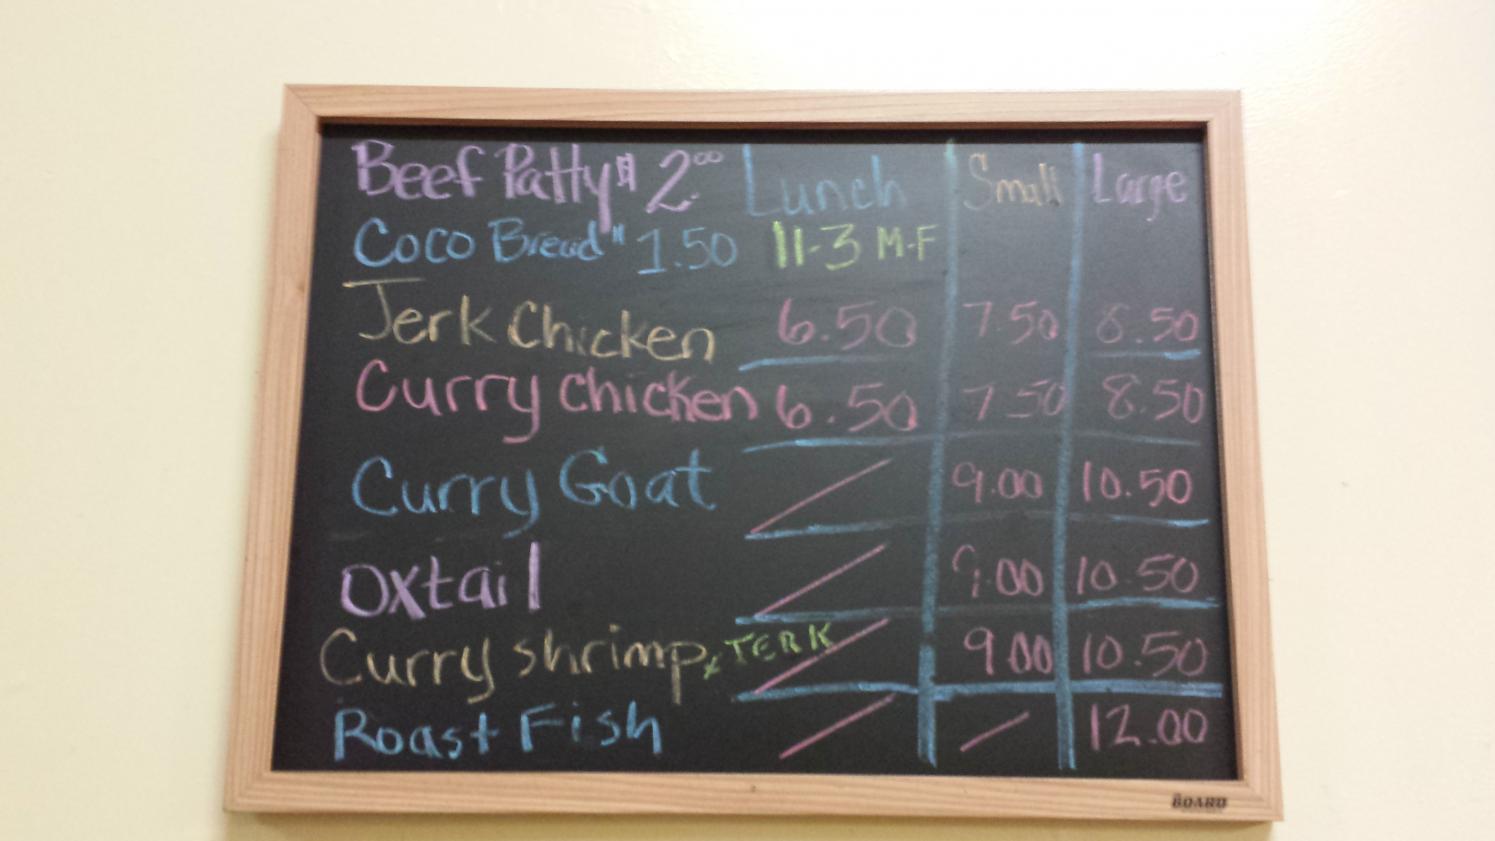 Beef Patty $ 2.00 Lunch Small Large
Coco Bread " 1.50 11-3 M-F
Jerk Chicken 6.50 7.50 8.50
Curry Chicken 6.50 7.50 8.50
Curry Goat 9.00 10.50
Oxtail 9.00 10.50
Curry shrimp + JERK 9.00 10.50
Roast Fish 12.00
BOARD